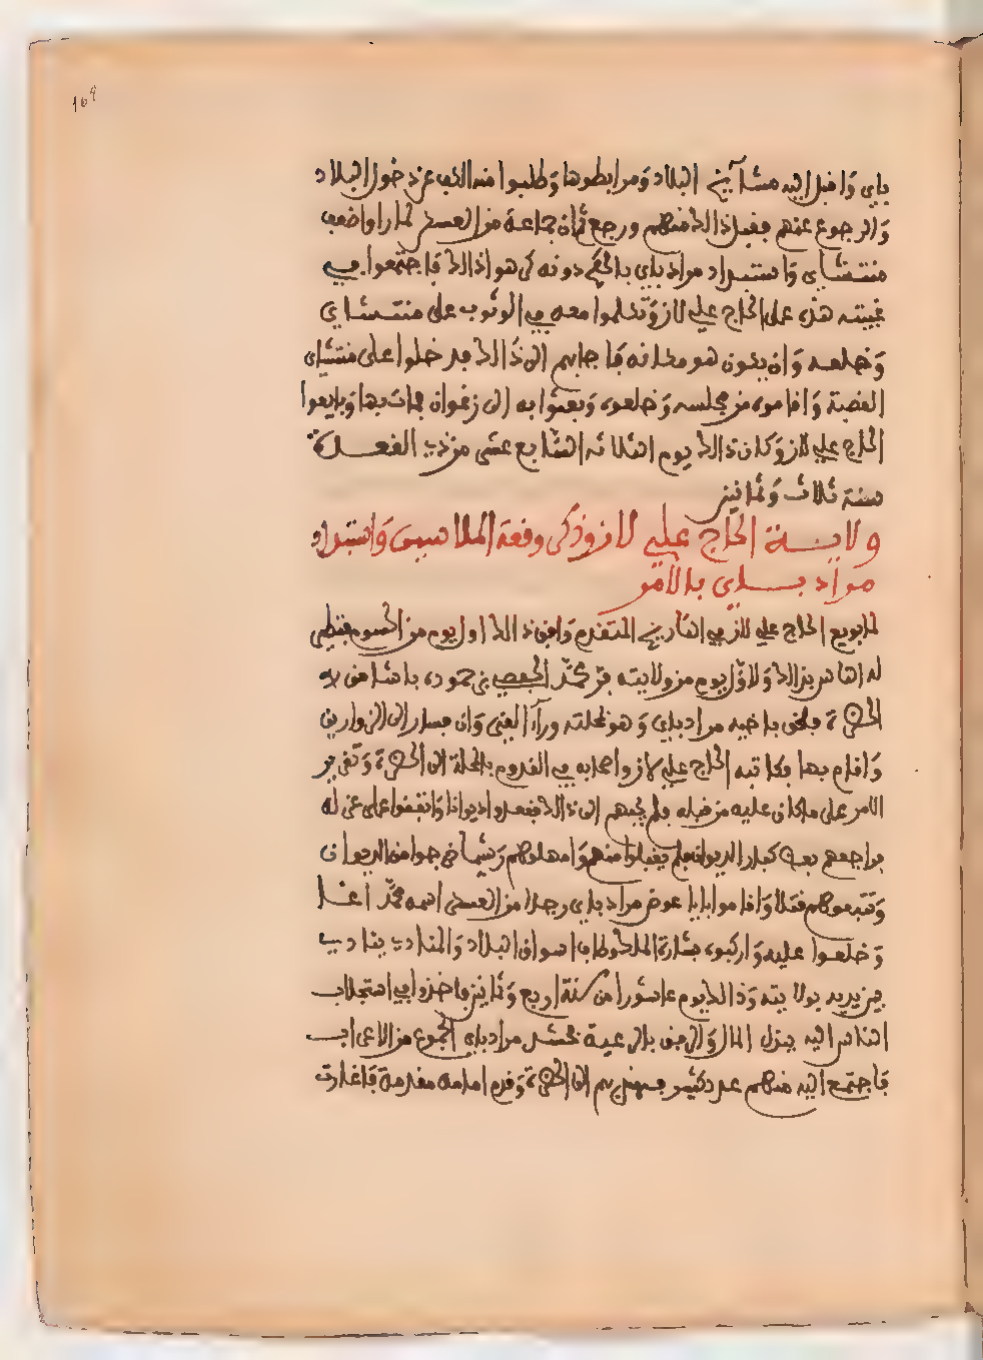 169
باي وَاقبل اليه مشآيخ البلاد وَمرابطوها وَطلبوا منه الكف عن دخول البلاد
وَالرجوع عنهم فقبل ذالك منهم ورجع ثم ان جماعة من العسكر لما راوا ضعف
منتشاي وَاستبداد مراد باي بالحكم دونه كرهوا ذالك فاجتمعوا في
غيبته هذه على الحاج علي لاز وَتكلموا معه في الوثوب على منتشاي
وَخلعه وَان يكون هو مكانه فاجابهم الى ذالك فدخلوا على منتشاي
القصبة وَاقاموه من مجلسه وَخلعوه وَبعثوا به الى زغوان فمات بها وَبايعوا
الحاج علي لاز وَكان ذالك يوم الثلاثه السّابع عشر من ذي القعدة
سنة ثلاث وَثمانين
ولاية الحاج علي لاز وذكر وقعة الملاسين وَاستبداد
مراد باي بالامر
لما بويع الحاج علي لاز في التاريخ المتقدم وَافق ذالك اول يوم من الحسوم فتطير
له الناس بذالك وَلاوّل يوم من ولايته فرّ محمّد الحفصي بن حموده باشا من
الحضرة فلحق باخيه مراد باي وَهو بمحلته ورآء القيروان فسار الى الزوارين
وَاقام بها فكاتبه الحاج علي لاز واصحابه في القدوم بالمحلة الى الحضرة وَتقرير
الامر على ماكان عليه من قبله فلم يجبهم الى ذالك فعقدوا ديوانا وَاتفقوا على عزله
فراجعهم بعض كبار الديوان فلم يقبلوا منهم وَامهلوهم رَيثما خرجوا من الديوان
وَتتبعوهم قتلا وَاقاموا بايا عوض مراد باي رجلا من العسكر اسمه محمّد اغا
وَخلعوا عليه وَاركبوه بشارة الملك وطاف اسواق البلاد وَالمنادي ينادي
بين يديه بولايته وَذالك يوم عاشورا من سنة اربع وَثمانين فاخذوا في استجلاب
الناس اليه ببذل المال وَالرفق بالرعية فحشد مراد باي الجموع من الاعراب
فاجتمع اليه منهم عدد كثير فنهض بهم الى الحضرة وَقدم امامه مقدمة فاغارت